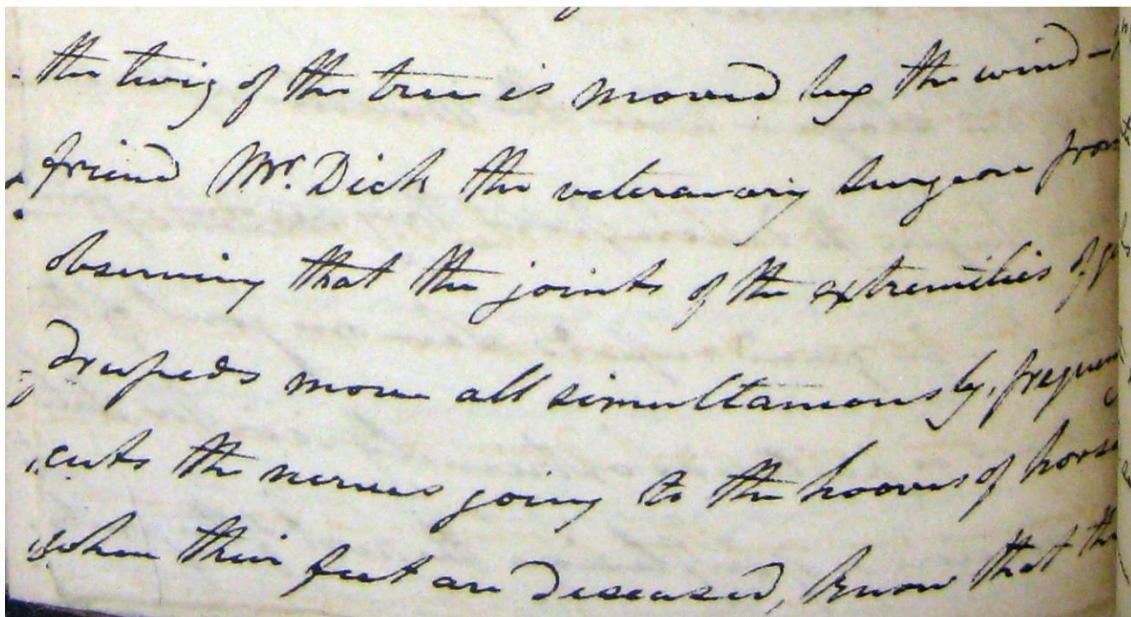 the twig of the tree is moved by the wind -
friend Mr. Dick the veteranary surgeon from
observing that the joints of the extremities of
drupeds move all simultaneously, frequen
cuts the nerves going to the hooves of horse
when their feet are diseased, know that the